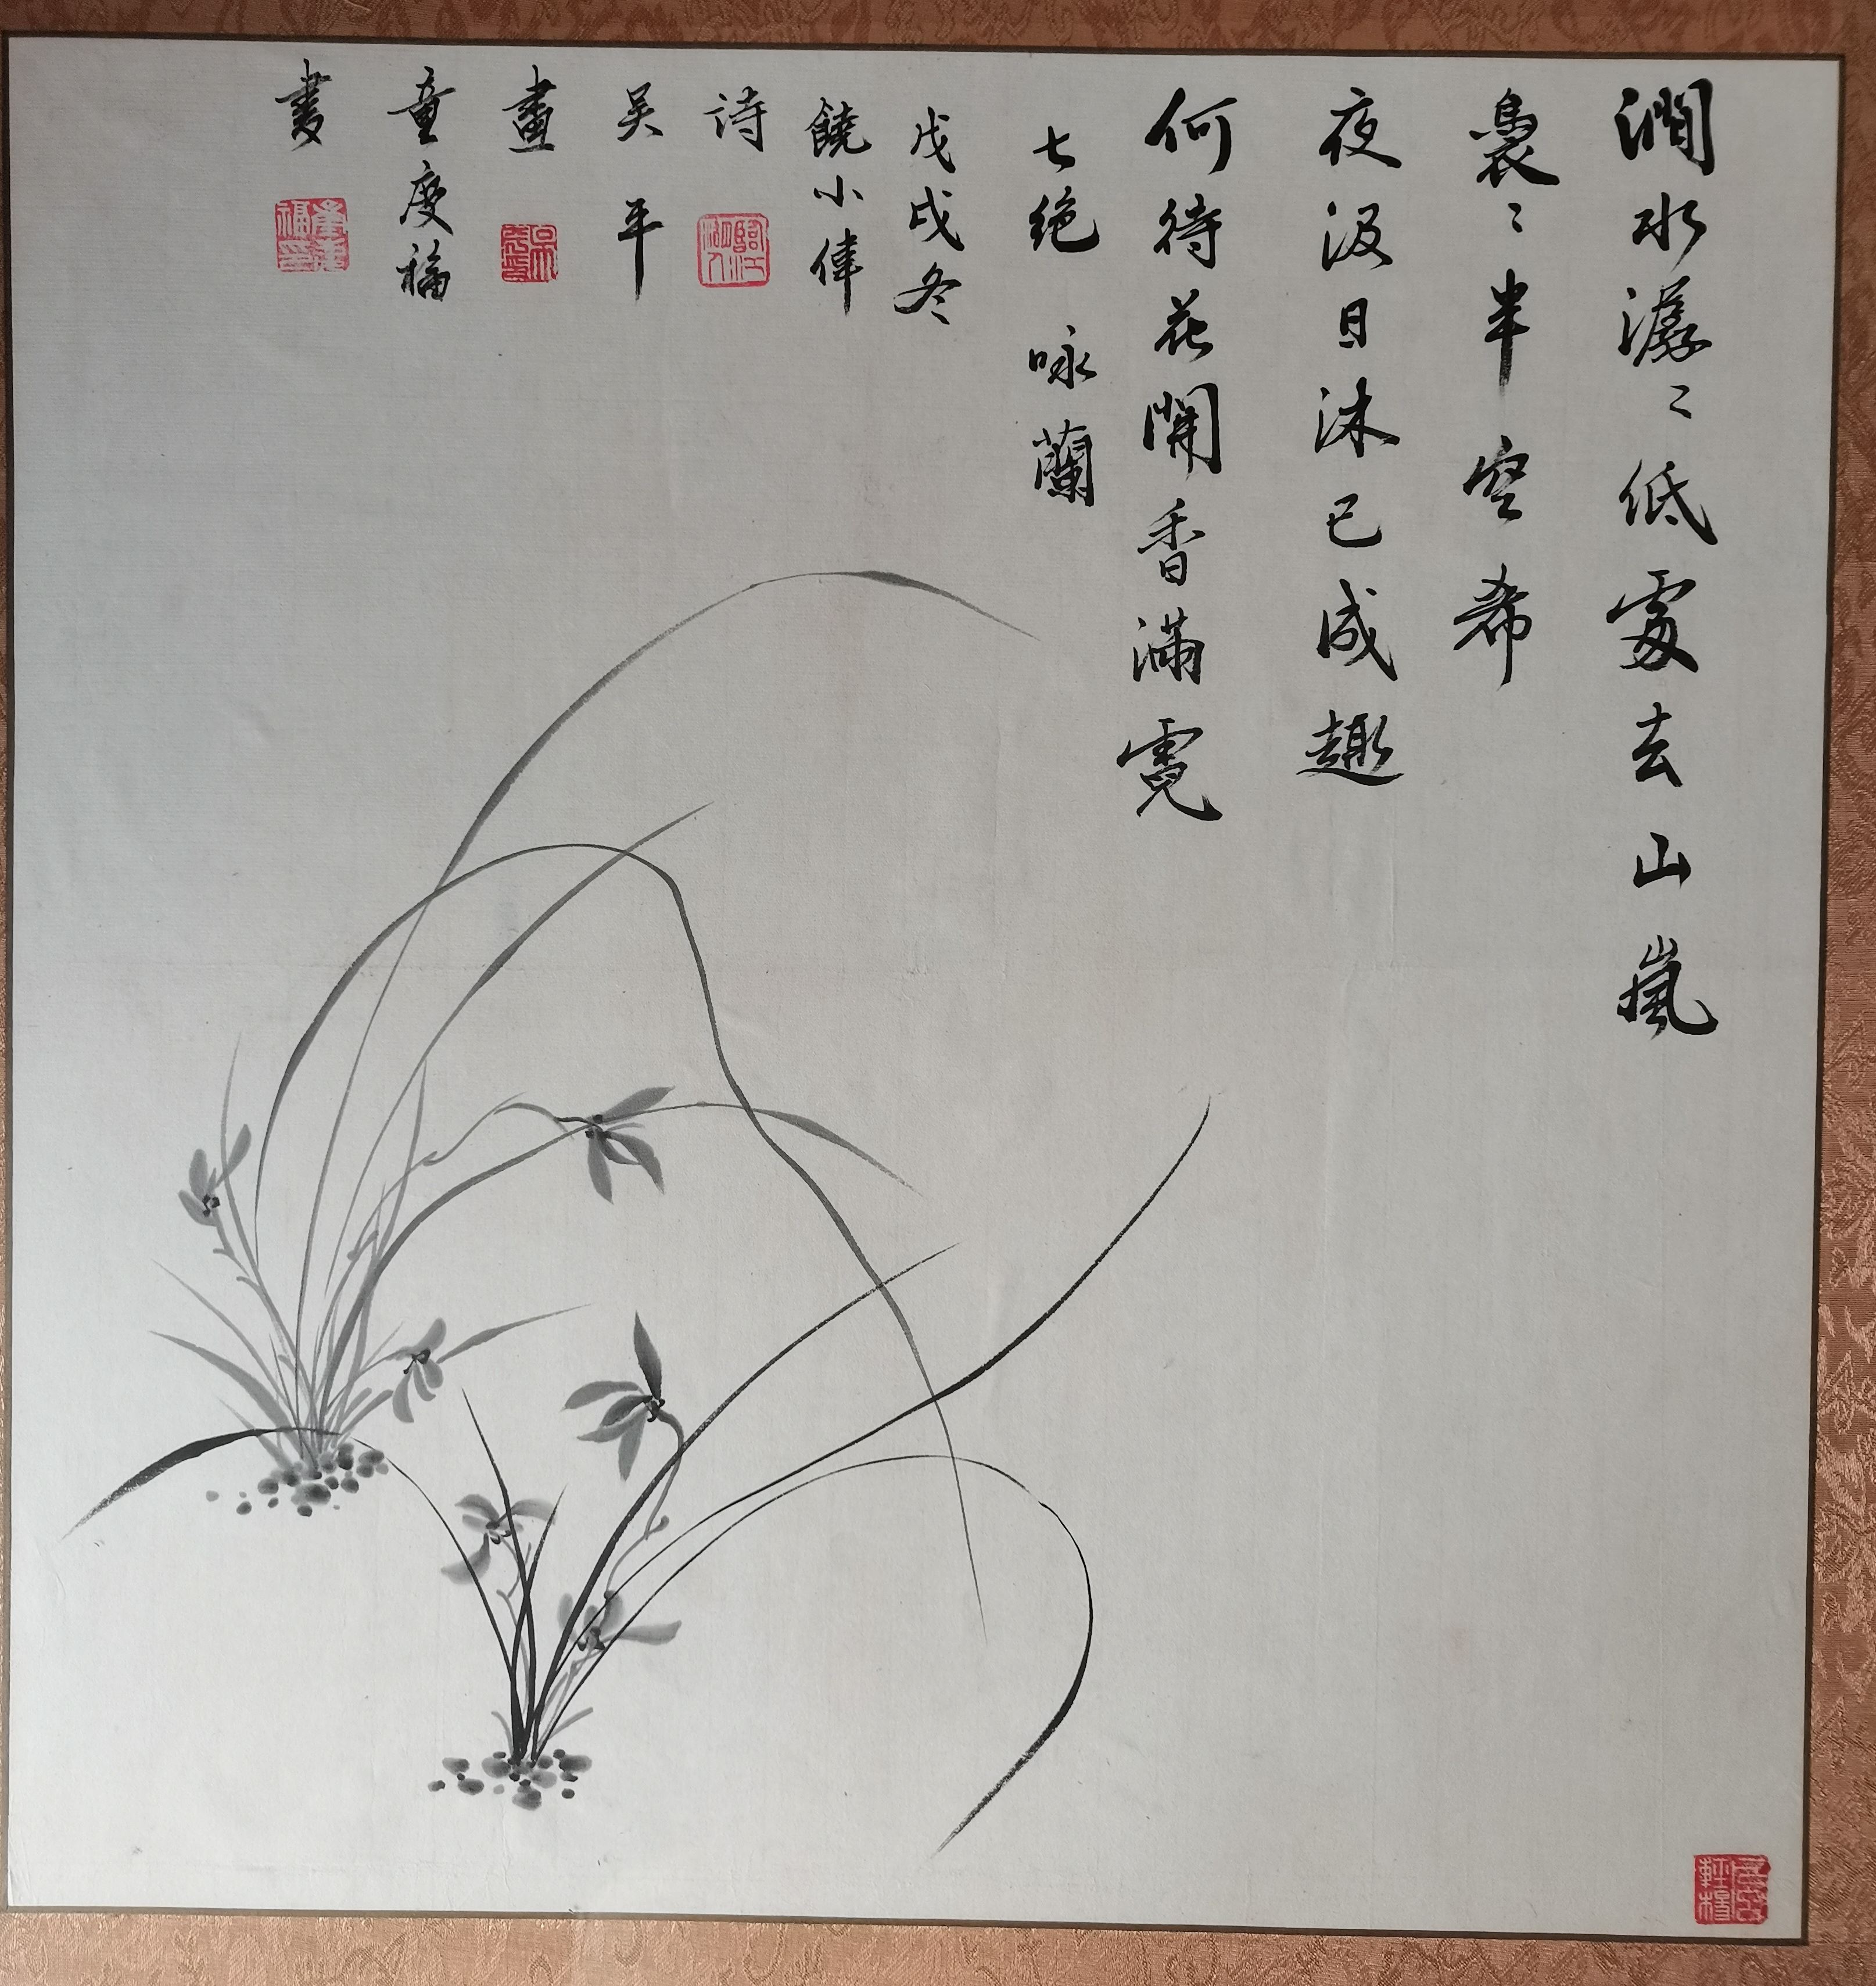 澗水潺〻低處去山嵐
裊〻半空希
夜汲日沐已成趣
何待花開香滿霓
七绝 咏蘭
戊戌冬
饒小偉
詩
吴平
畫
童慶福
書